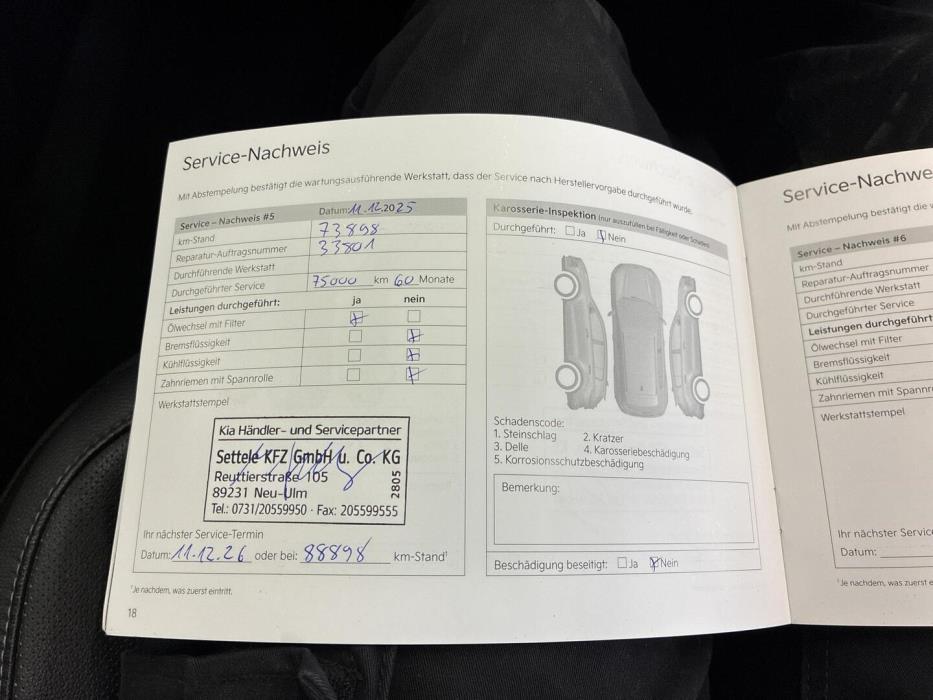 Service-Nachweis
Mit Abstempelung bestätigt die wartungsausführende Werkstatt, dass der Service nach Herstellervorgabe durchgeführt wurde.
Service – Nachweis #5 Datum: 11.12.2025
km-Stand 73898
Reparatur-Auftragsnummer 33801
Durchführende Werkstatt
Durchgeführter Service 75000 km 60 Monate
Leistungen durchgeführt: ja nein
Ölwechsel mit Filter
Bremsflüssigkeit
Kühlflüssigkeit
Zahnriemen mit Spannrolle
Werkstattstempel
Kia Händler- und Servicepartner
Settele KFZ GmbH u. Co. KG
Reuttierstraße 105
89231 Neu-Ulm
Tel.: 0731/20559950 · Fax: 205599555
2805
Ihr nächster Service-Termin
Datum: 11.12.26 oder bei: 88898 km-Stand¹
¹Je nachdem, was zuerst eintritt.
18
Karosserie-Inspektion (nur auszufüllen bei Fälligkeit oder Schäden)
Durchgeführt: Ja Nein
Schadenscode:
1. Steinschlag 2. Kratzer
3. Delle 4. Karosseriebeschädigung
5. Korrosionsschutzbeschädigung
Bemerkung:
Beschädigung beseitigt: Ja Nein
Service-Nachwe
Mit Abstempelung bestätigt die
Service – Nachweis #6
km-Stand
Reparatur-Auftragsnummer
Durchführende Werkstatt
Durchgeführter Service
Leistungen durchgeführt
Ölwechsel mit Filter
Bremsflüssigkeit
Kühlflüssigkeit
Zahnriemen mit Spannr
Werkstattstempel
Ihr nächster Servic
Datum:
¹Je nachdem, was zuerst e